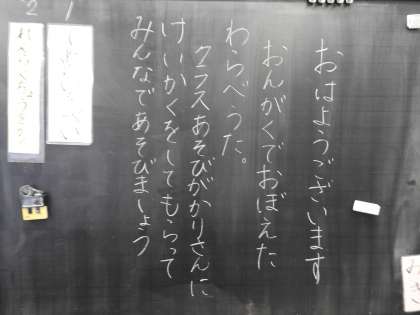 おはようございます
おんがくでおぼえた
わらべうた。
クラスあそびがかりさんに
けいかくをしてもらって
みんなであそびましょう
1
2